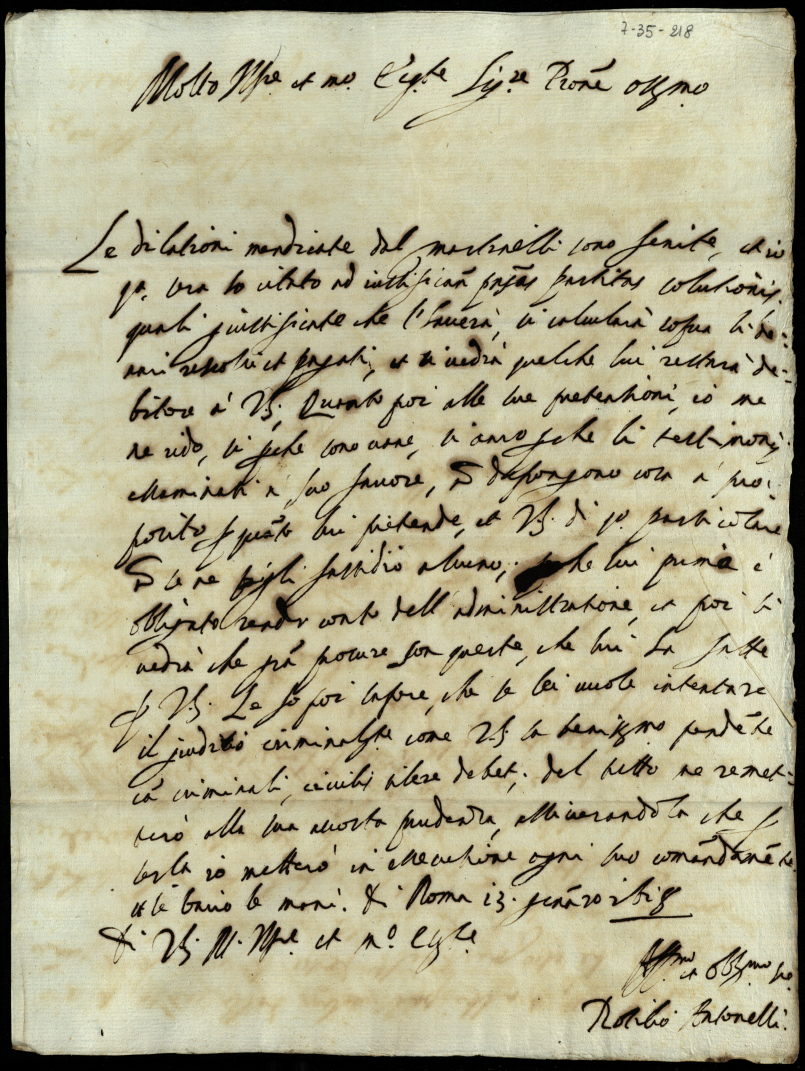 7-35-218
Molto Ill.re et m.o Ecc.te Sig.re Pron̄e oss.mo
Le dilationi mendicate dal martinelli sono finite, et io
già l'ho citato ad iustifican̄ partitas solutionis.
quali giustificate che l'haverà, si calcularà li de-
nari et pagati, et si vedrà quel che lui restarà de-
bitore à V.S. Quanto poi alle sue pretentioni, io me
ne rido, si che sono vane, si anco che li testimonij
essaminati à suo favore, nō depongono cosa à pro-
posito quāto lui pretende, et V.S. di particolare
nō se ne pigli fastidio alcuno, che lui prima è
obligato render conto dell'administratione, et poi si
vedrà che procure son queste, che lui ha fatte
p V.S. Le fo poi sapere, che se lei vuole intentare
il juditio criminale, come V.S. sa benissimo pendēte
cā criminali, civilis silere debet; del tutto ne remet-
terò alla sua accorta prudenza, assicurandola che p
servirla io metterò in essecutione ogni suo comādamēto
et le bacio le mani. Di Roma 13. genāro 1618
Di V.S. M. Ill.re et m.o Ecc.te
Aff.mo et obblig.mo
Antonelli.